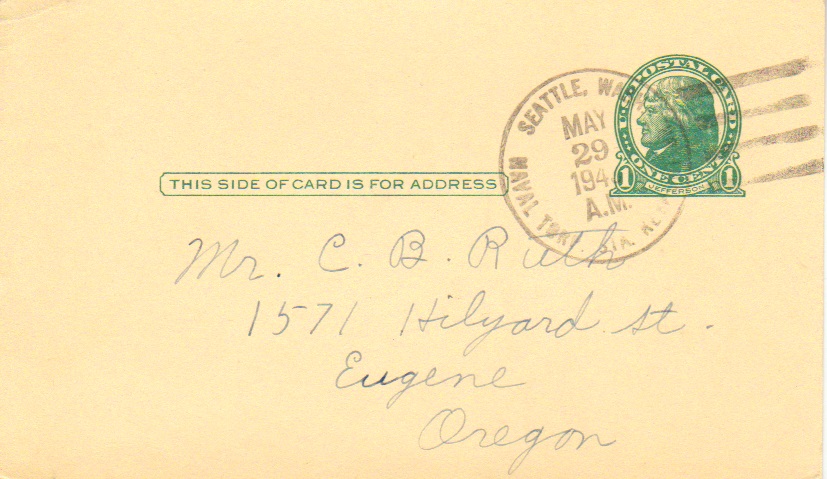 U.S. POSTAL CARD
ONE CENT
1 JEFFERSON 1
SEATTLE,
MAY
29
A.M.
NAVAL
STA.
THIS SIDE OF CARD IS FOR ADDRESS
Mr. C. B. Ruth
1571 Hilyard St.
Eugene
Oregon